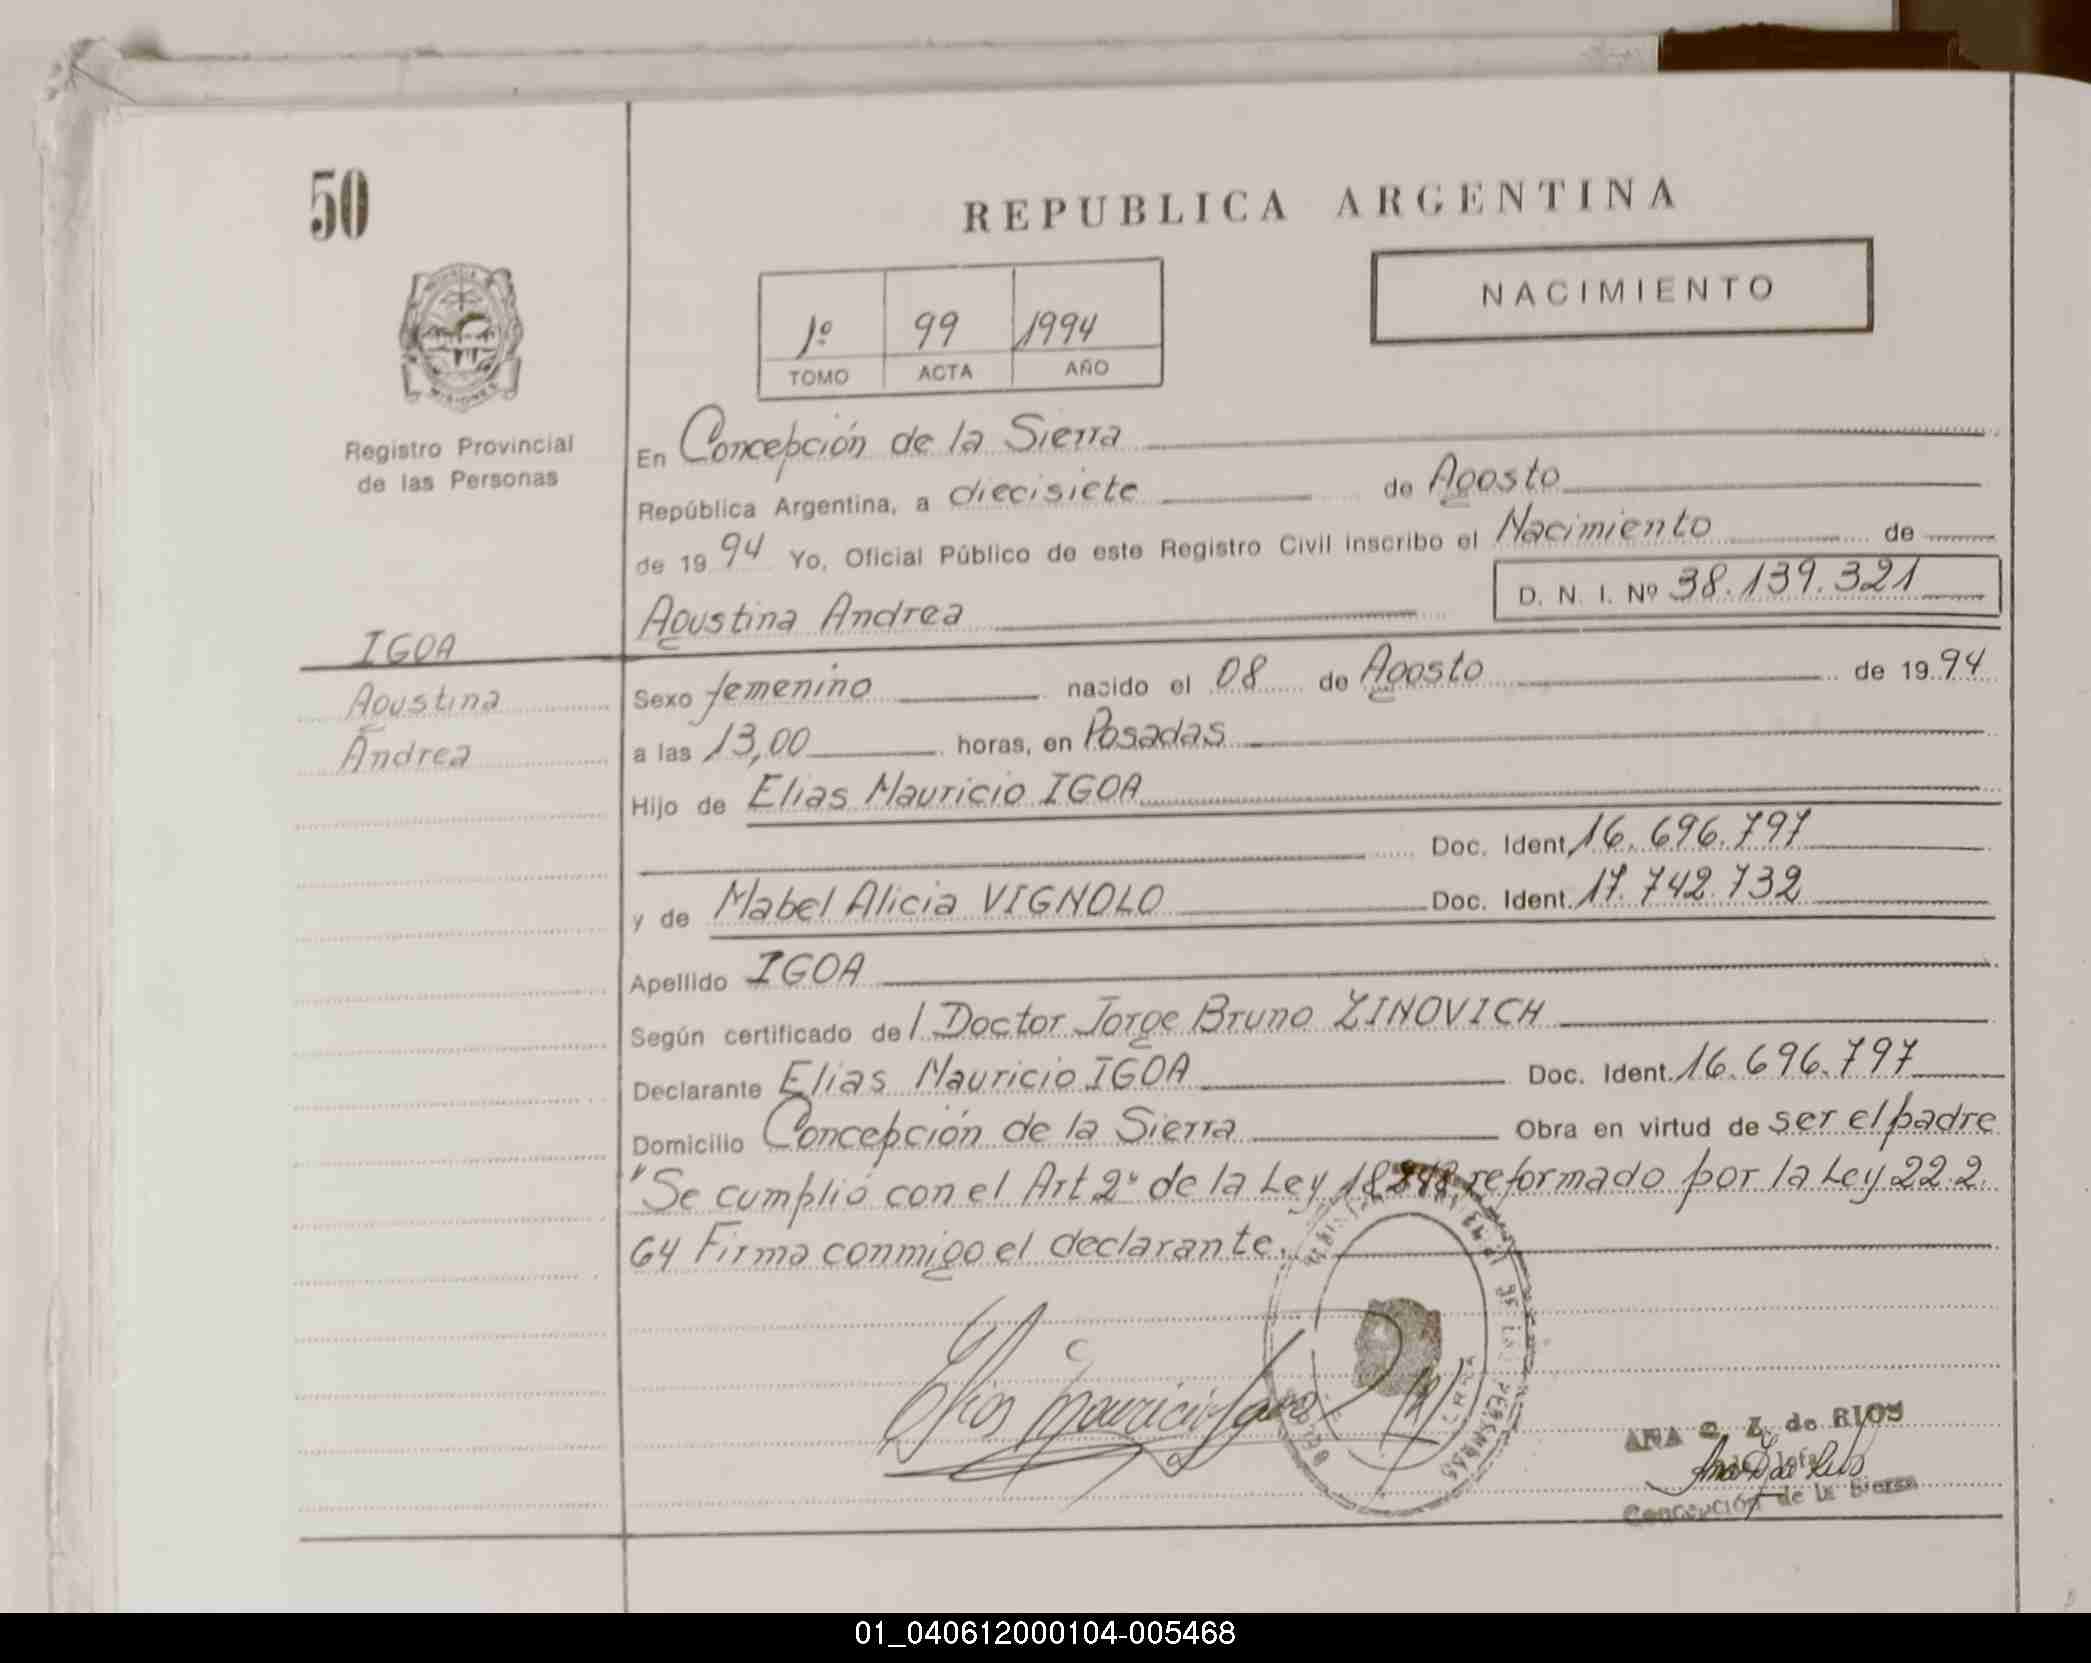 50
REPUBLICA ARGENTINA
NACIMIENTO
1º 99 1994
TOMO ACTA AÑO
MISIONES
Registro Provincial
de las Personas
En Concepción de la Sierra
República Argentina, a diecisiete de Agosto
de 1994 Yo, Oficial Público de este Registro Civil inscribo el Nacimiento de
D. N. I. Nº 38.139.321
Agustina Andrea
IGOA
Agustina
Andrea
Sexo femenino nacido el 08 de Agosto de 1994
a las 13,00 horas, en Posadas
Hijo de Elias Mauricio IGOA
Doc. Ident. 16.696.797
y de Mabel Alicia VIGNOLO Doc. Ident. 17.742.732
Apellido IGOA
Según certificado del Doctor Jorge Bruno ZINOVICH
Declarante Elias Mauricio IGOA Doc. Ident. 16.696.797
Domicilio Concepción de la Sierra Obra en virtud de ser el padre
"Se cumplió con el Art 2º de la Ley 18248 reformado por la Ley 22.2.
64 Firma conmigo el declarante.
Elias Mauricio Igoa
ANA C. Z. de RIOS
Concepción de la Sierra
01_040612000104-005468